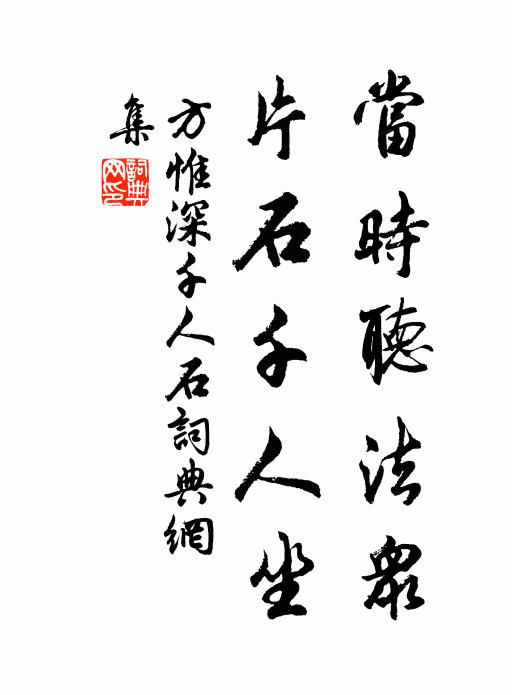 當時聽法衆
片石千人坐
方惟深千人石詞典網
集
詞典网印